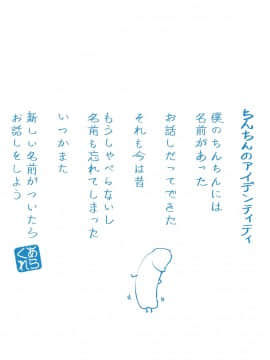 ちんちんのアイデンティティ
僕のちんちんには
名前があった
お話しだってできた
それも今は昔
もうしゃべらないし
名前も忘れてしまった
いつかまた
新しい名前がついたら
お話しをしよう
あらくれ